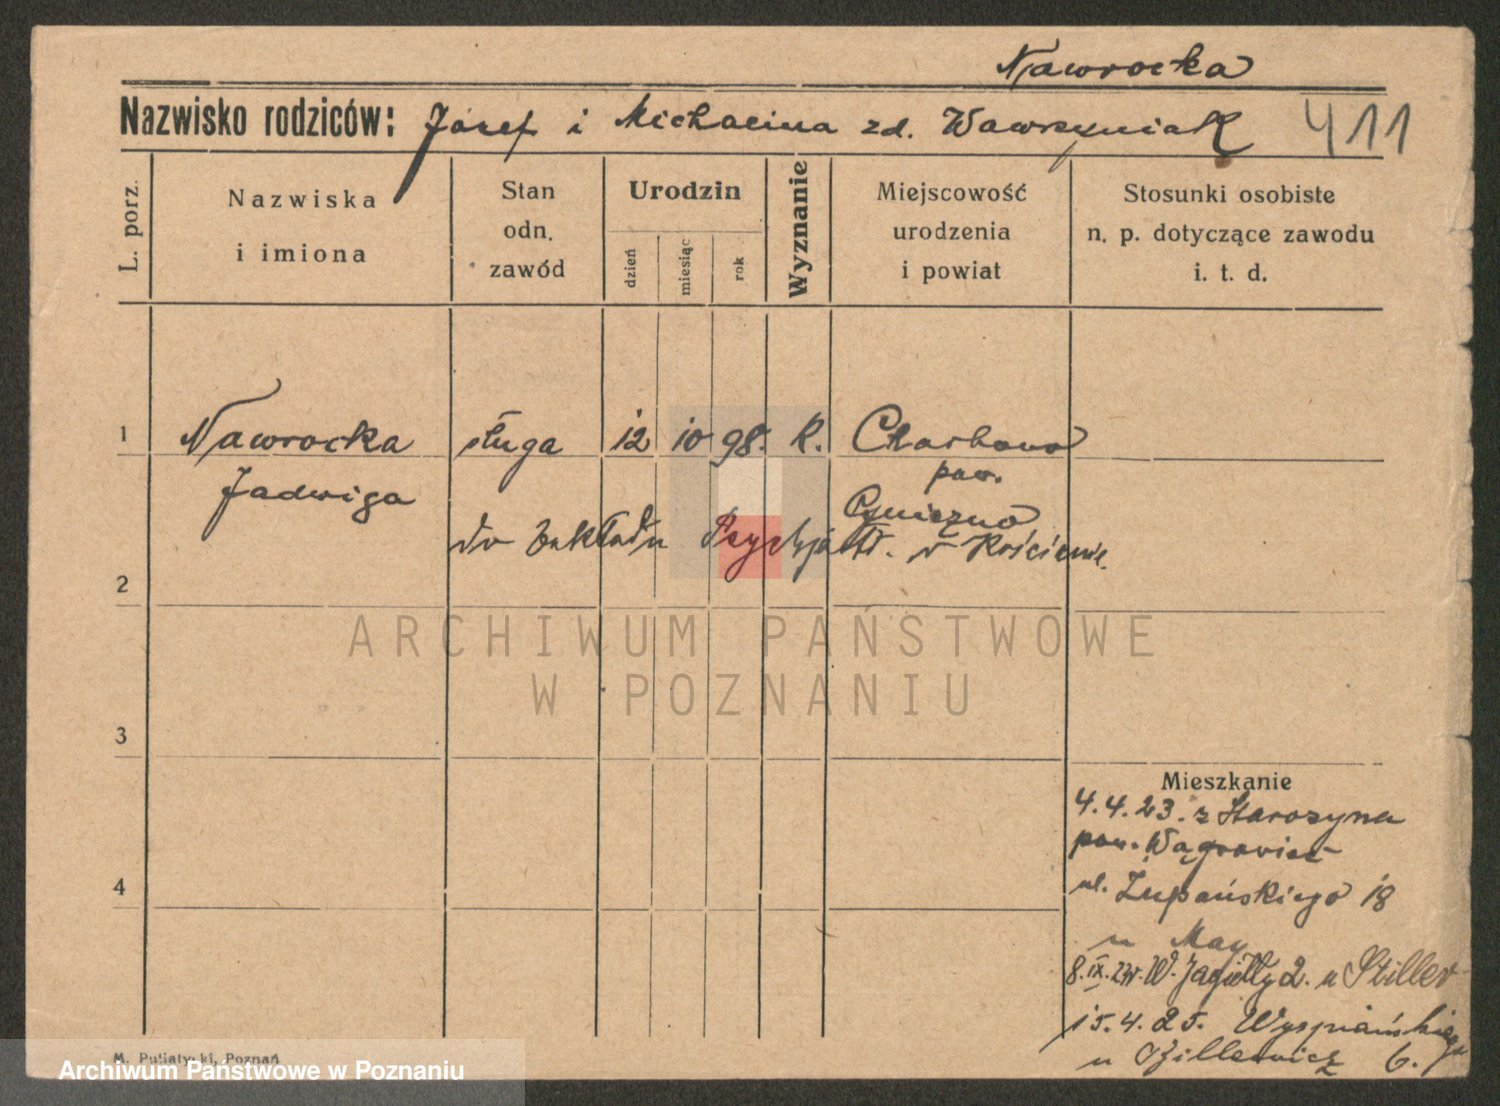 Nawrocka
Nazwisko rodziców: Józef i Michalina zd. Wawrzyniak 411
L. porz.
Nazwiska
i imiona
Stan
odn.
zawód
Urodzin
dzień
miesiąc
rok
Wyznanie
Miejscowość
urodzenia
i powiat
Stosunki osobiste
n. p. dotyczące zawodu
i. t. d.
1 Nawrocka sługa 12 10 98. k.
Jadwiga
pow.
Gniezno
do Zakładu Psychjatr. w Kościanie.
2
ARCHIWUM PAŃSTWOWE
W POZNANIU
3
Mieszkanie
4.4.23. z Starozyna
pow. Wągrowiec
4
ul. Żupańskiego 18
u May
8.IX. W. Jagiełły 2. u Stiller
15.4.25. Wyspiańskiego
u 6.
M. Putiatycki, Poznań
Archiwum Państwowe w Poznaniu